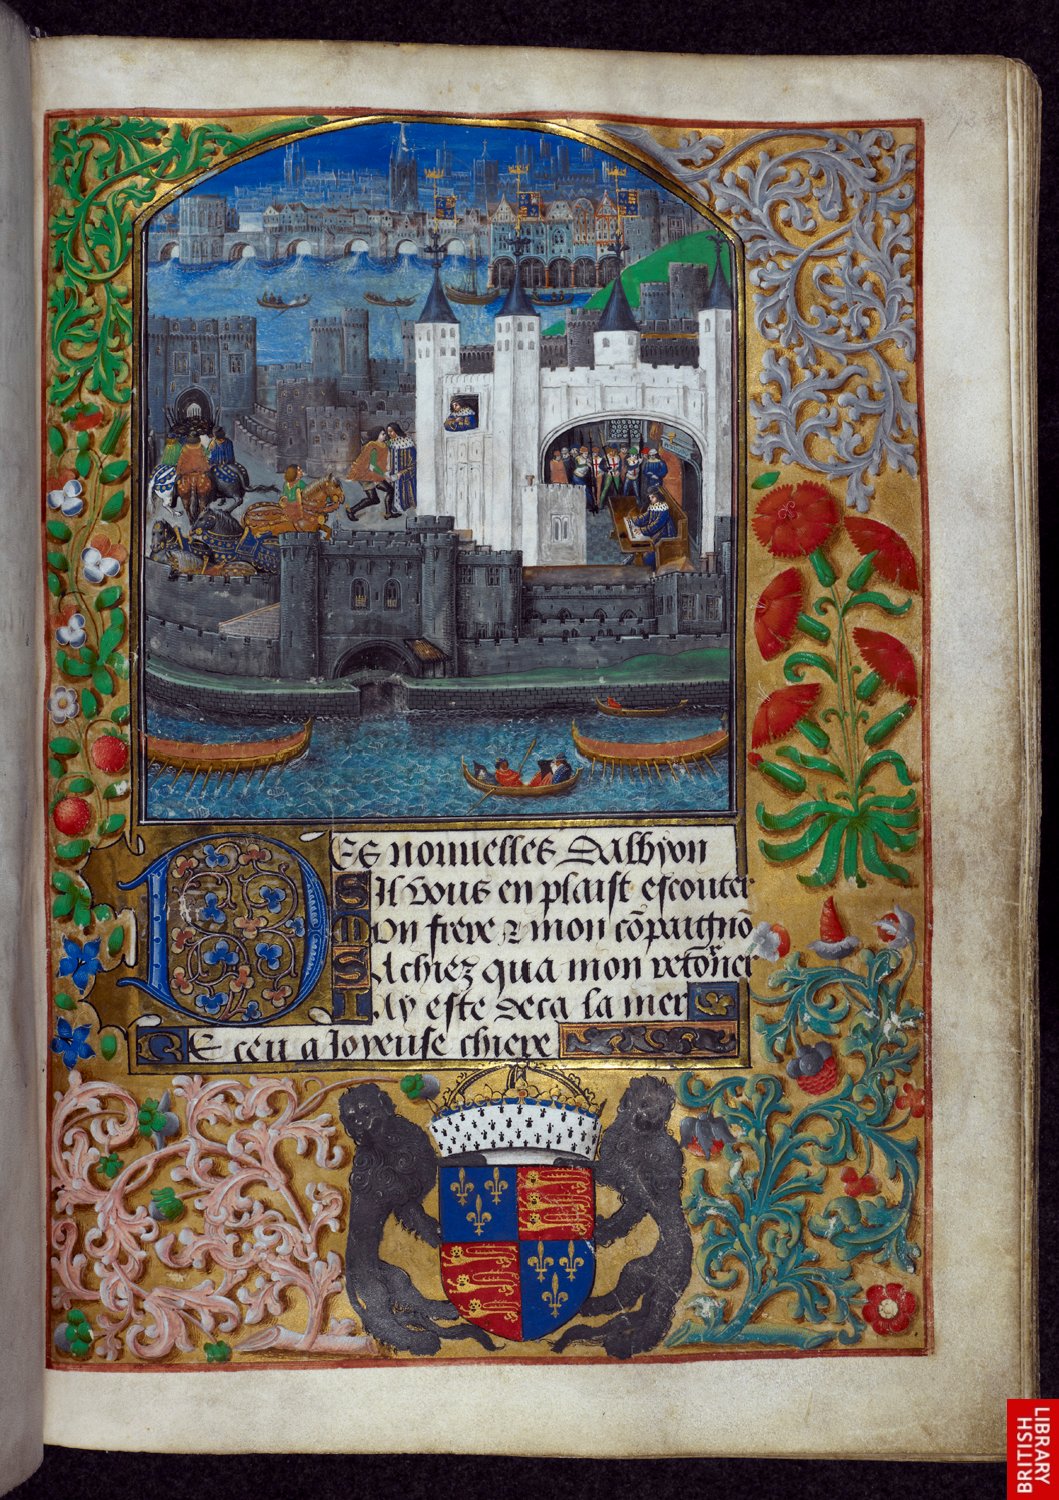 Des nouuelles Dalbyon
Sil vous en plaist escouter
Mon frere & mon cõpaignõ
Sachiez qua mon retourner
Iay este deca la mer
Receu a Joyeuse chiere
BRITISH
LIBRARY